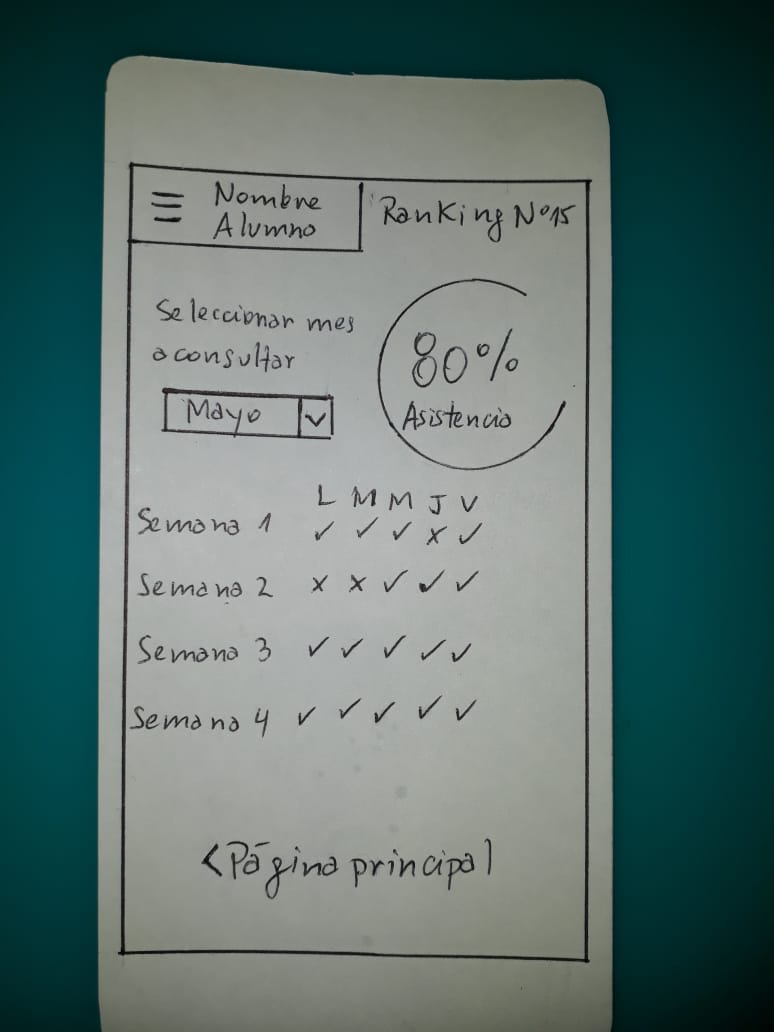 ☰ Nombre
Alumno
Ranking Nº15
Seleccionar mes
a consultar
Mayo
80%
Asistencia
L M M J V
Semana 1 ✓ ✓ ✓ x ✓
Semana 2 x x ✓ ✓ ✓
Semana 3 ✓ ✓ ✓ ✓ ✓
Semana 4 ✓ ✓ ✓ ✓ ✓
<Página principal